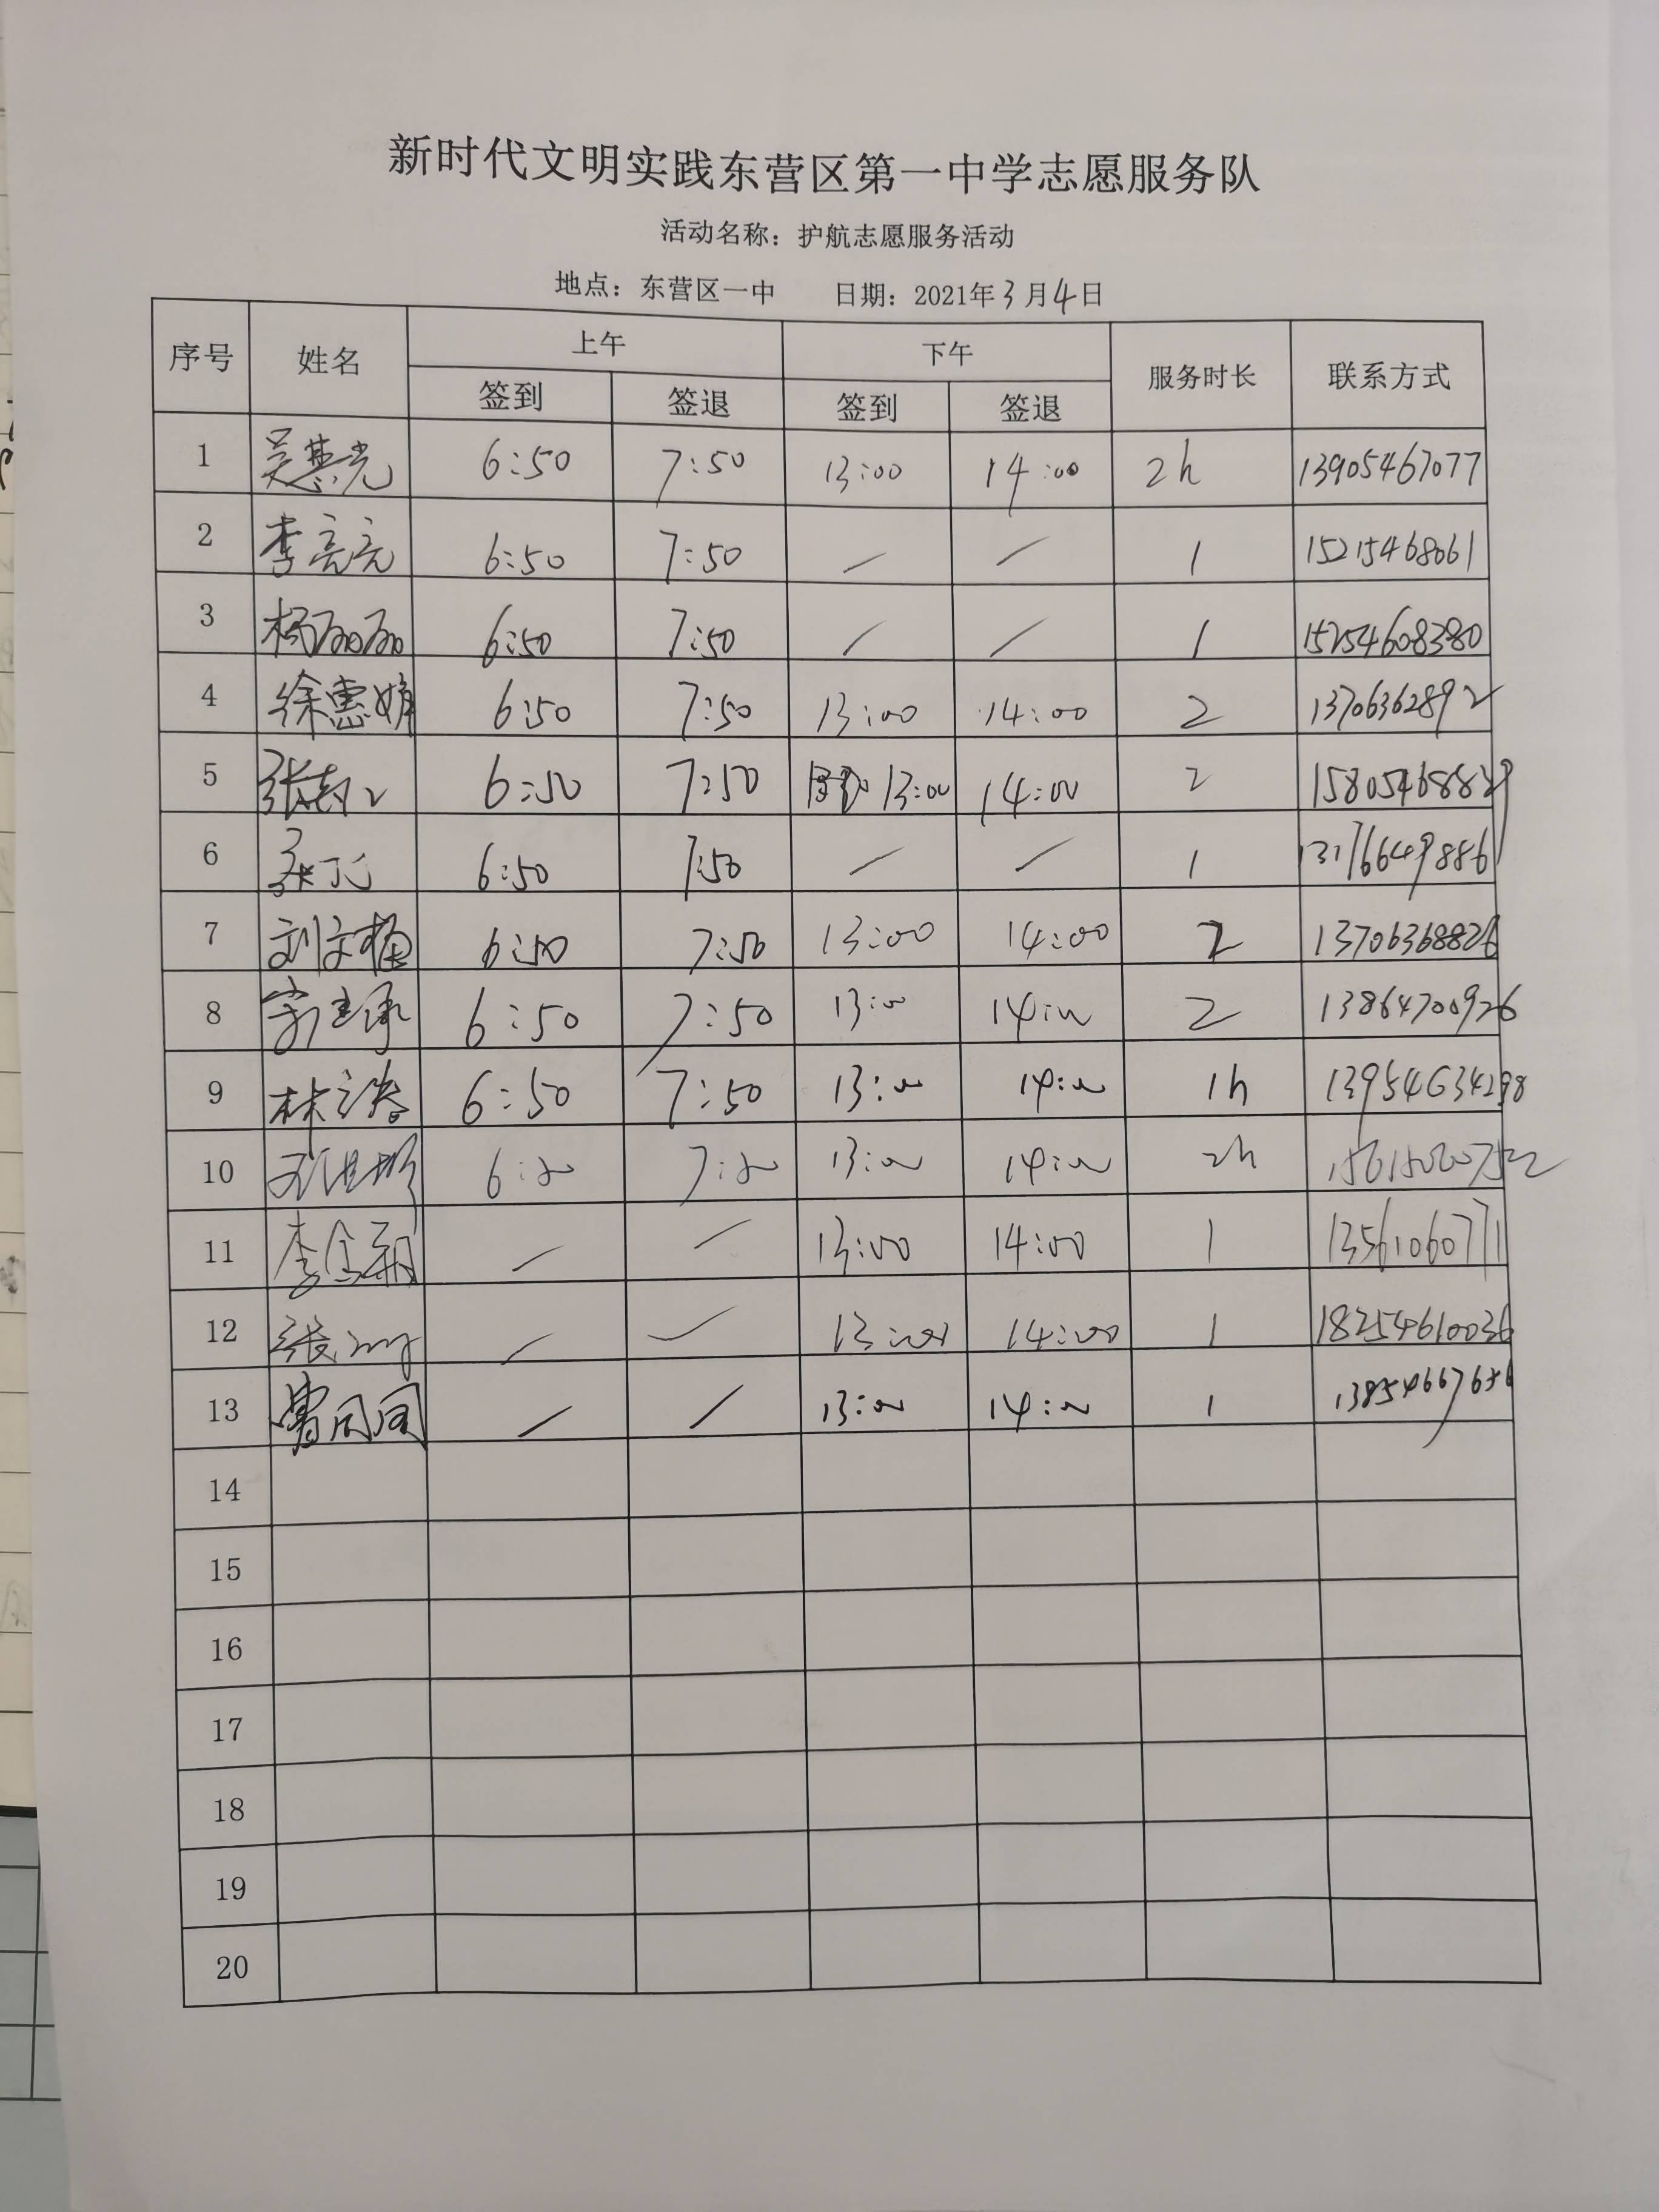 新时代文明实践东营区第一中学志愿服务队
活动名称：护航志愿服务活动
地点：东营区一中 日期：2021年3月4日
序号 姓名 上午 下午 服务时长 联系方式
签到 签退 签到 签退
1 吴慧光 6:50 7:50 13:00 14:00 2h 13905467077
2 李亮亮 6:50 7:50 / / 1 15215468061
3 杨丽丽 6:50 7:50 / / 1 15254608380
4 徐惠娟 6:50 7:50 13:00 14:00 2 13706362892
5 6:50 7:50 13:00 14:00 2
6 6:50 7:50 / / 1 13176649886
7 刘文梅 6:50 7:50 13:00 14:00 2 13706368826
8 6:50 7:50 13:00 14:00 2 13864700926
9 6:50 7:50 13:00 14:00 1h 13954634298
10 6:50 7:50 13:00 14:00 2h
11 李金朝 / / 13:00 14:00 1 13561060771
12 张 / / 13:00 14:00 1 18254610036
13 曹同同 / / 13:00 14:00 1 13854667656
14
15
16
17
18
19
20